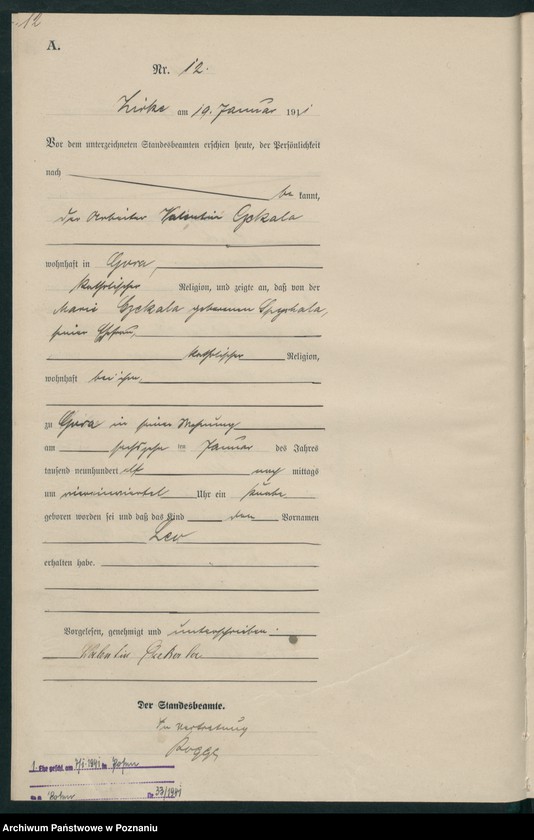 12
A.
Nr. 12.
Zirke am 19. Januar 1911
Vor dem unterzeichneten Standesbeamten erschien heute, der Persönlichkeit
nach
be kannt,
der Arbeiter Valentin
wohnhaft in Gora,
katholischer Religion, und zeigte an, daß von der
Marie geborenen
seiner Ehefrau,
katholischer Religion,
wohnhaft bei ihm
zu Gora in seiner Wohnung
am sechszehn ten Januar des Jahres
tausend neunhundert elf nach mittags
um Uhr ein Knabe
geboren worden sei und daß das Kind den Vornamen
Leo
erhalten habe.
Vorgelesen, genehmigt und unterschrieben.
Valentin
Der Standesbeamte.
In Vertretung
1. Ehe geschl. am 1941 in Posen
Posen Nr. 33/1941
Archiwum Państwowe w Poznaniu